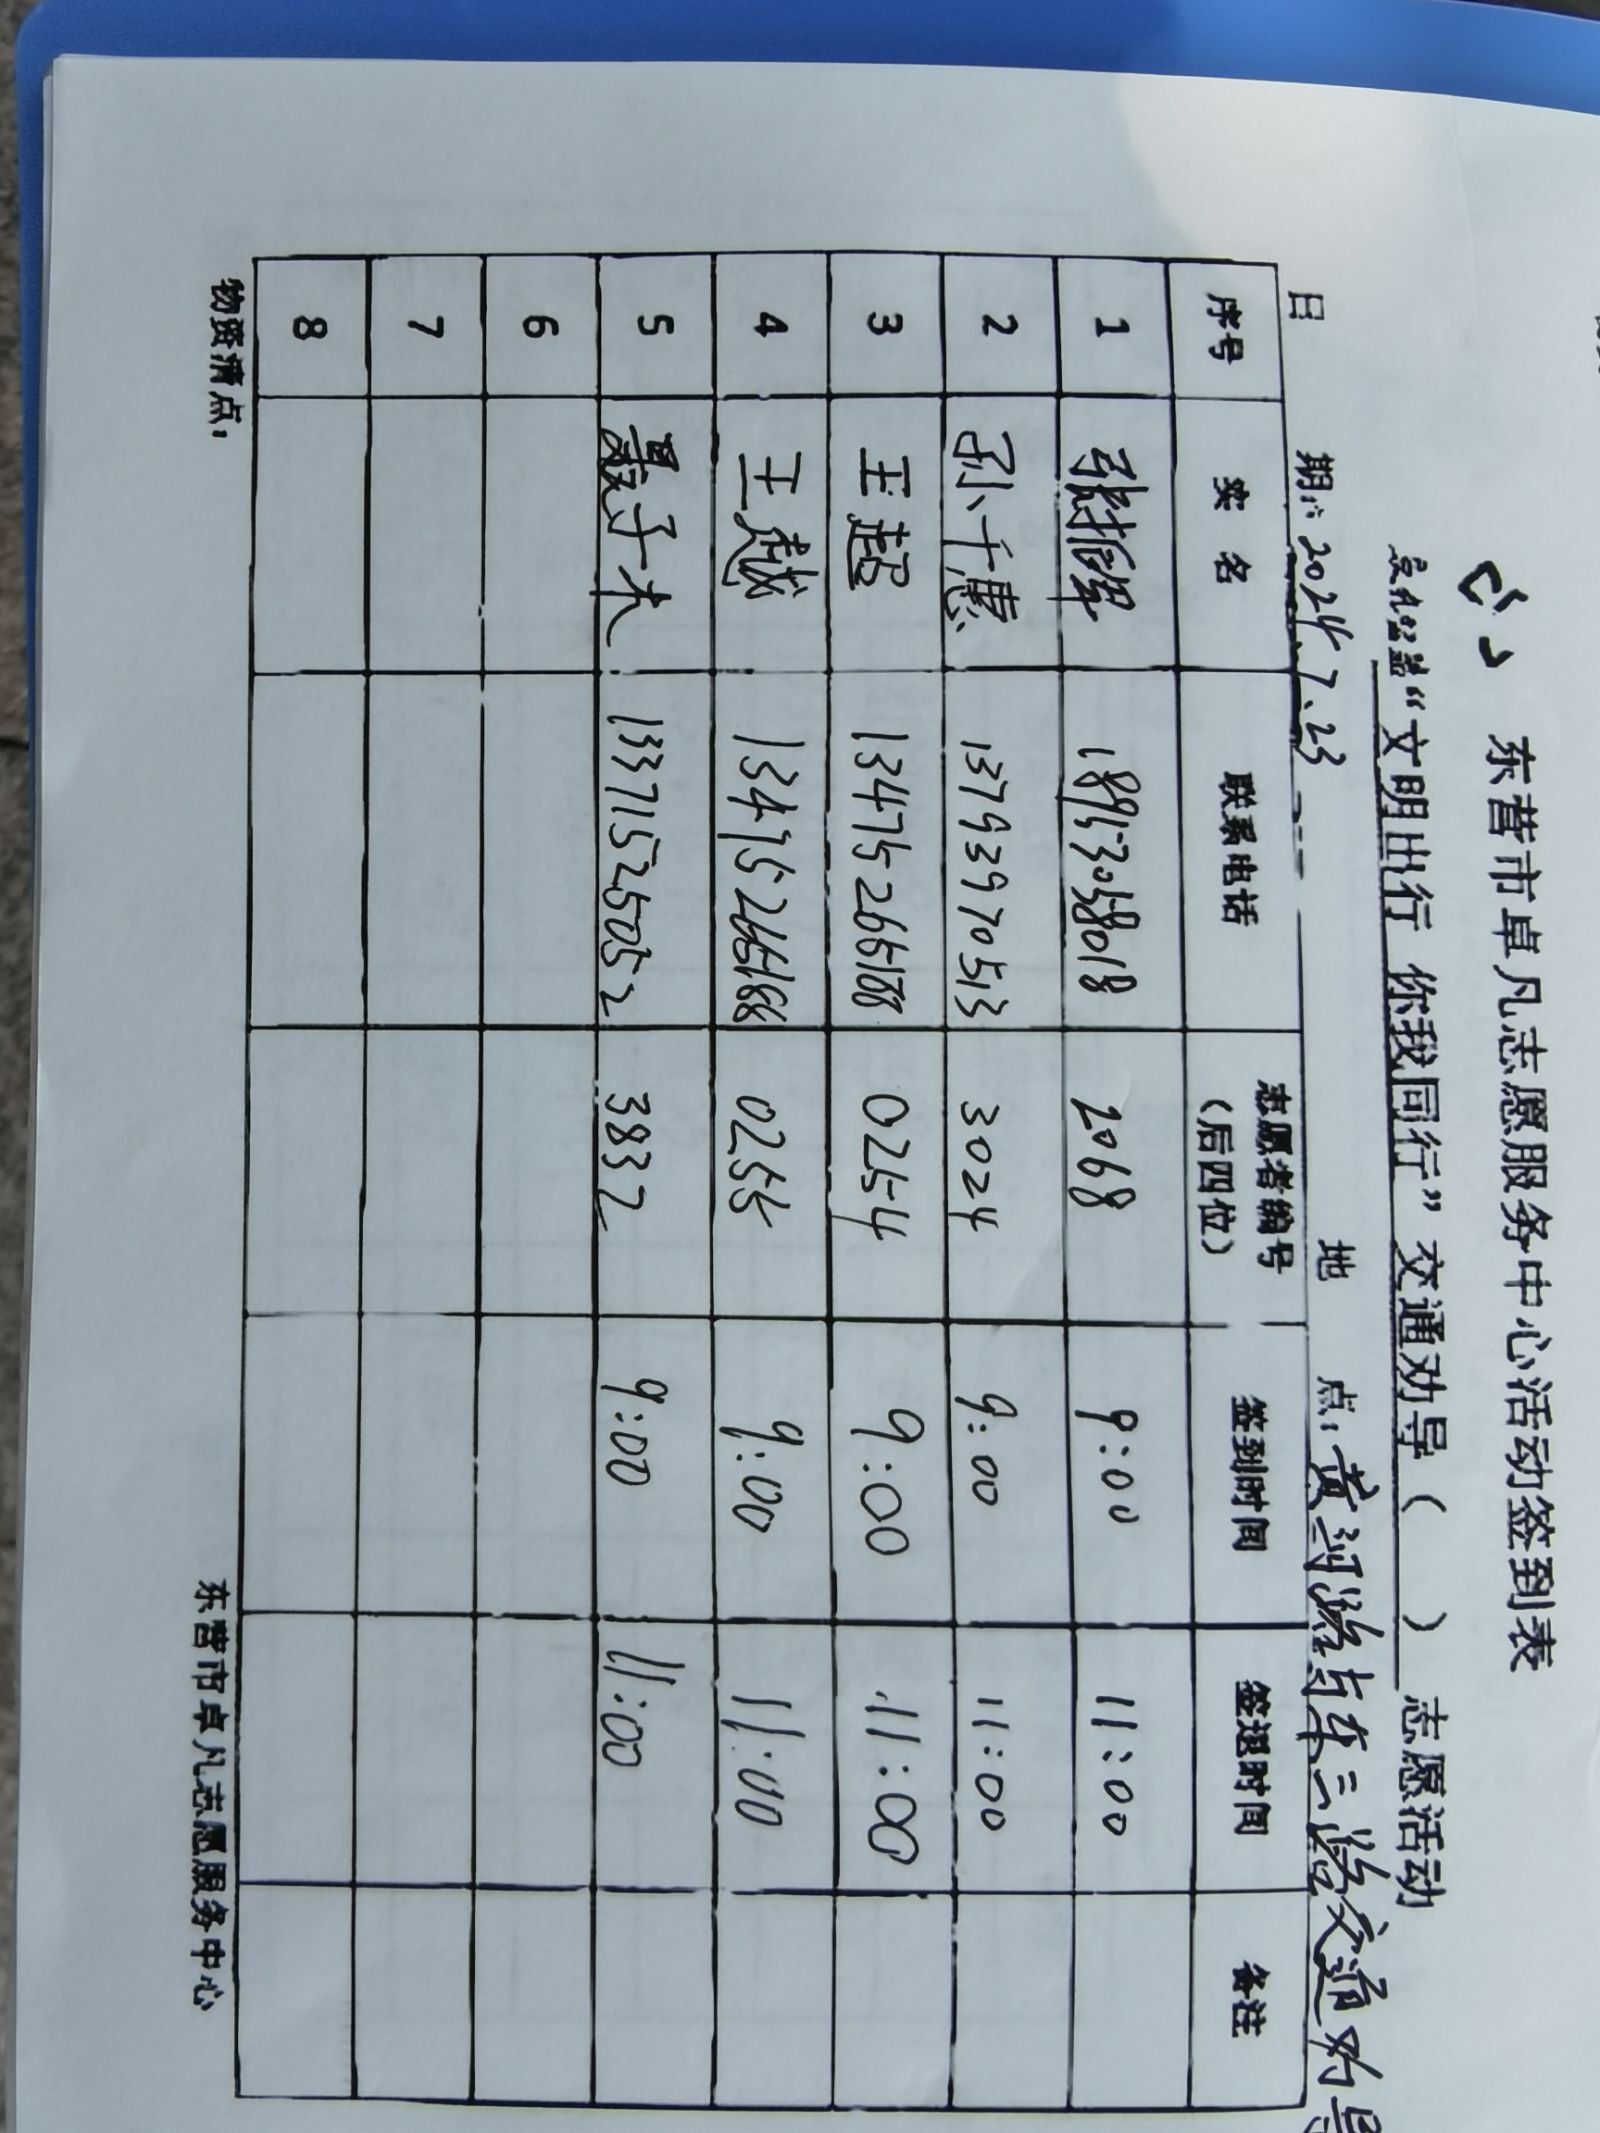 东营市卓凡志愿服务中心活动签到表
“文明出行 你我同行”交通劝导（ ）志愿活动
日 期：2024.7.23 地 点：黄河路与东三路交通劝导
序号 实名 联系电话 志愿者编号（后四位） 签到时间 签退时间 备注
1 18953058018 2068 9:00 11:00
2 孙千惠 13793970513 3024 9:00 11:00
3 王超 13475266188 0254 9:00 11:00
4 王越 13475266188 0255 9:00 11:00
5 聂子木 13371525052 3832 9:00 11:00
6
7
8
物资清点：
东营市卓凡志愿服务中心